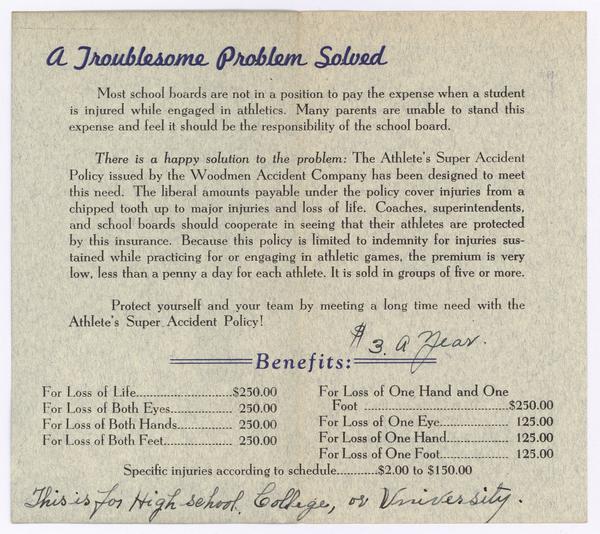 A Troublesome Problem Solved
Most school boards are not in a position to pay the expense when a student
is injured while engaged in athletics. Many parents are unable to stand this
expense and feel it should be the responsibility of the school board.
There is a happy solution to the problem: The Athlete's Super Accident
Policy issued by the Woodmen Accident Company has been designed to meet
this need. The liberal amounts payable under the policy cover injuries from a
chipped tooth up to major injuries and loss of life. Coaches, superintendents,
and school boards should cooperate in seeing that their athletes are protected
by this insurance. Because this policy is limited to indemnity for injuries sus-
tained while practicing for or engaging in athletic games, the premium is very
low, less than a penny a day for each athlete. It is sold in groups of five or more.
Protect yourself and your team by meeting a long time need with the
Athlete's Super Accident Policy!
$3. a Year.
Benefits:
For Loss of Life..............................$250.00
For Loss of Both Eyes.................. 250.00
For Loss of Both Hands................ 250.00
For Loss of Both Feet.................... 250.00
For Loss of One Hand and One
Foot ..........................................$250.00
For Loss of One Eye...................... 125.00
For Loss of One Hand.................. 125.00
For Loss of One Foot.................... 125.00
Specific injuries according to schedule............$2.00 to $150.00
This is for High school, College, or University.